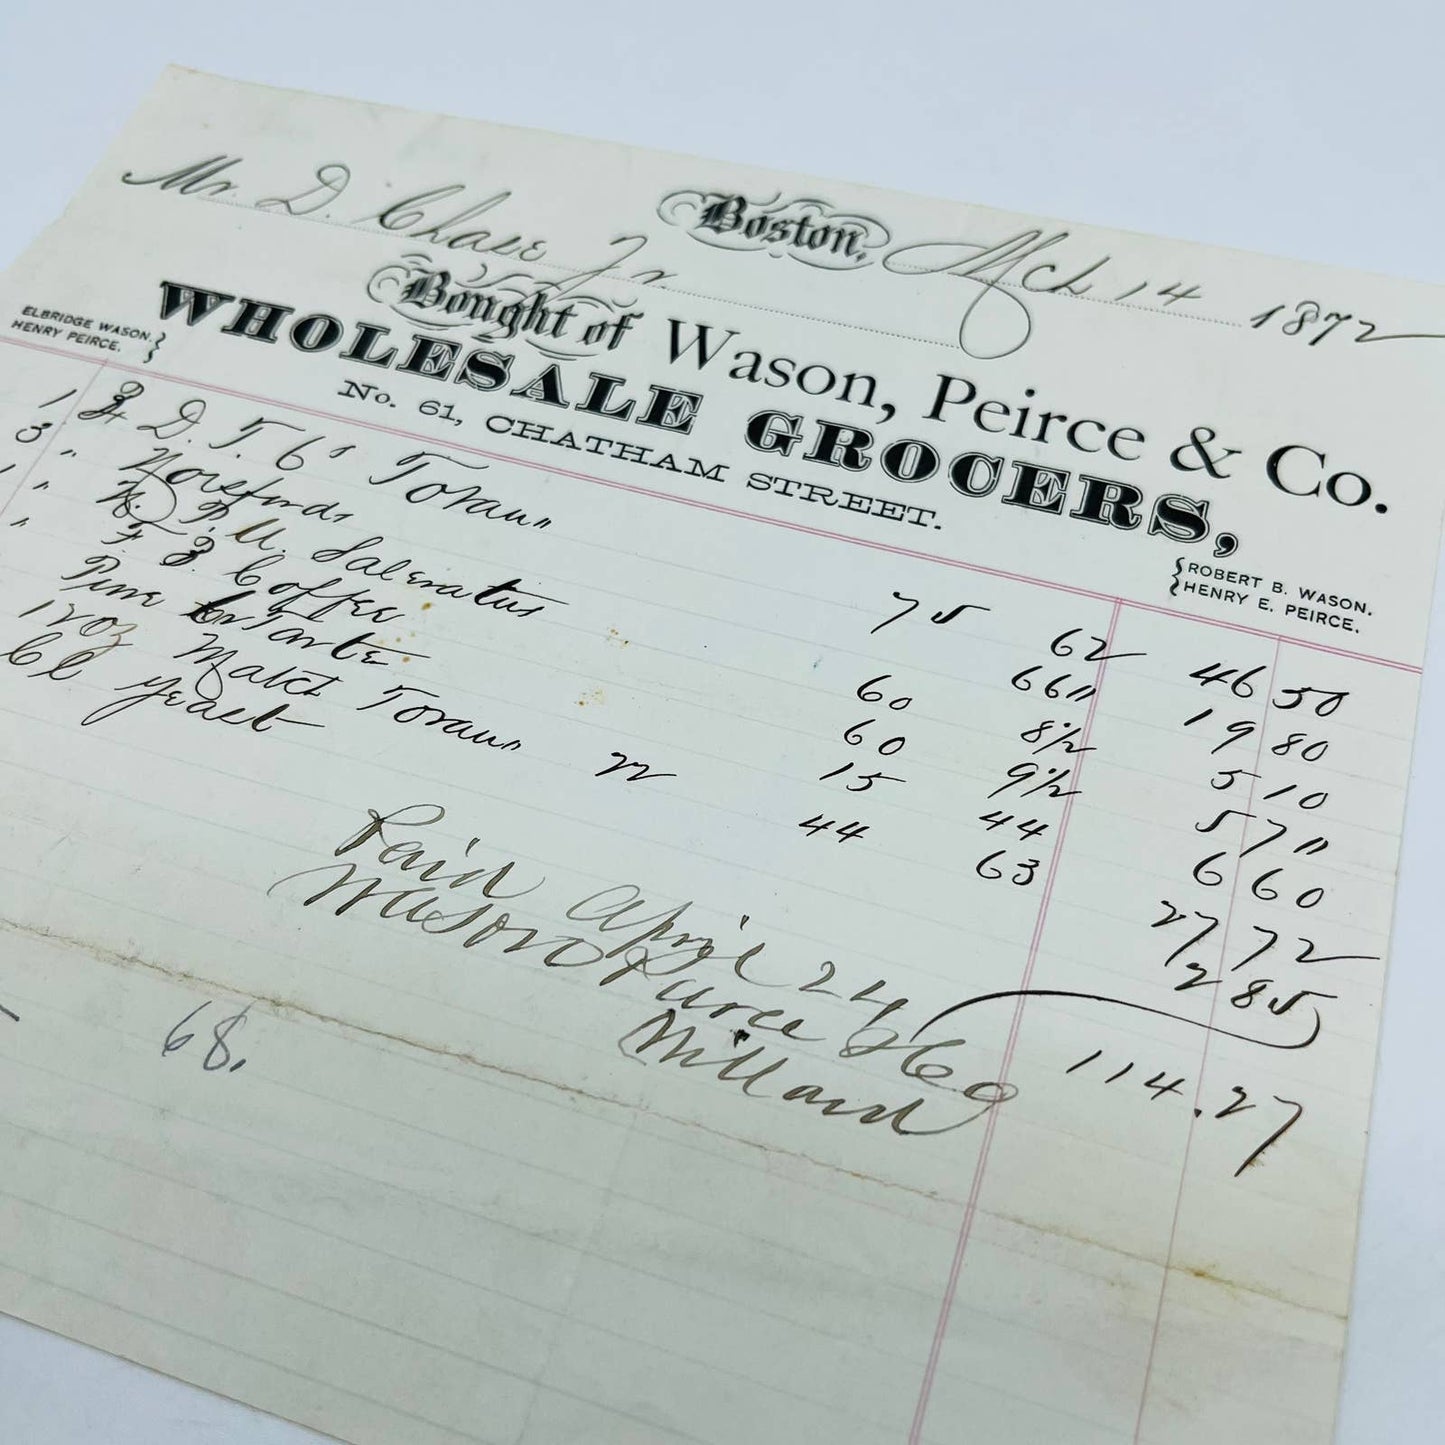 Boston, Mch 14 1872
Mr. D. Chase Jr.
Bought of Wason, Peirce & Co.
ELBRIDGE WASON.
HENRY PEIRCE.
WHOLESALE GROCERS,
No. 61, CHATHAM STREET.
ROBERT B. WASON.
HENRY E. PEIRCE.
1 D. T. 6s 75 62 46 50
3 " Horsfords 60 66 " 19 80
1 " Saleratus 60 8½ 5 10
" Coffee 15 9½ 5 7 "
Pure Tartar 44 44 6 60
Match 22 63 27 72
Yeast 2 85
114.27
Paid April 24
Wason Peirce & Co
Millard
68.